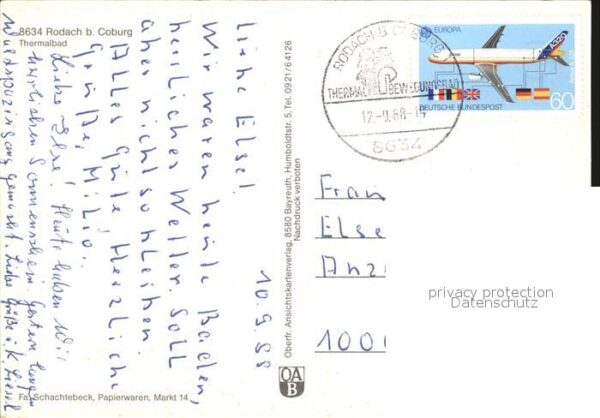 8634 Rodach b. Coburg
Thermalbad
10.9.88
Liebe Else!
Wir waren heute Baden,
herrliches Wetter. Soll
aber nicht so bleiben.
Alles Gute, Herzliche
Grüße, Milio.
Liebe Else! Heute haben wir
herrlichen Sonnenschein. Gestern
gemacht. Liebe Grüße
Fa. Schachtebeck, Papierwaren, Markt 14
Oberfr. Ansichtskartenverlag, 8580 Bayreuth, Humboldtstr. 5, Tel. 0921/64126
Nachdruck verboten
OA
B
RODACH B. COBURG
THERMAL BEWEGUNGSBAD
12.-9.88-15
8634
EUROPA
A320
DEUTSCHE BUNDESPOST
60
Frau
Else
Anz
1000
privacy protection
Datenschutz